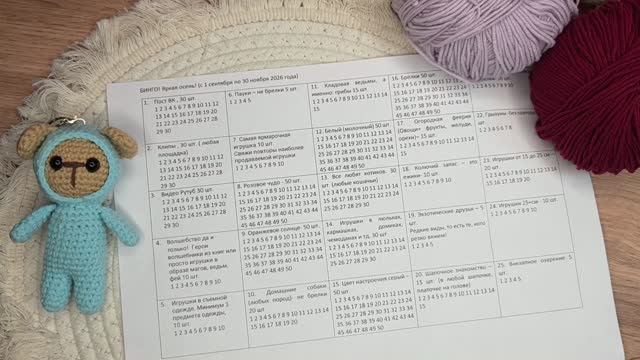 БИНГО! Яркая осень! (с 1 сентября по 30 ноября 2026 года)
1. Пост ВК , 30 шт.
1 2 3 4 5 6 7 8 9 10 11 12
13 14 15 16 17 18 19 20
21 22 23 24 25 26 27 28
29 30
6. Пауки – не брелоки 5 шт.
1 2 3 4 5
11. Кладовая ведьмы, а
именно: грибы 15 шт
1 2 3 4 5 6 7 8 9 10 11 12 13 14
15
16. Брелки 50 шт.
1 2 3 4 5 6 7 8 9 10 11 12 13 14
15 16 17 18 19 20 21 22 23 24
25 26 27 28 29 30 31 32 33 34
35 36 37 38 39 40 41 42 43 44
45 46 47 48 49 50
2. Клипы , 30 шт. ( любая
площадка)
1 2 3 4 5 6 7 8 9 10 11 12
13 14 15 16 17 18 19 20
21 22 23 24 25 26 27 28
29 30
7. Самая ярмарочная
игрушка 10 шт.
Самая повторы наиболее
продаваемой игрушки
1 2 3 4 5 6 7 8 9 10
12. Белый (молочный) 50 шт
1 2 3 4 5 6 7 8 9 10 11 12 13 14
15 16 17 18 19 20 21 22 23 24
25 26 27 28 29 30 31 32 33 34
35 36 37 38 39 40 41 42 43 44
45 46 47 48 49 50
17. Огородная феерия
(Овощи+ фрукты, желуди,
орехи)– 15 шт
1 2 3 4 5 6 7 8 9 10 11 12 13 14
15
22.
1 2 3 4 5 6 7 8
3. Видео Рутуб 30 шт.
1 2 3 4 5 6 7 8 9 10 11 12
13 14 15 16 17 18 19 20
21 22 23 24 25 26 27 28
29 30
8. Розовое чудо - 50 шт
1 2 3 4 5 6 7 8 9 10 11 12 13 14
15 16 17 18 19 20 21 22 23 24
25 26 27 28 29 30 31 32 33 34
35 36 37 38 39 40 41 42 43 44
45 46 47 48 49 50
13. Все любят котиков. 30
шт (любые кошачьи)
1 2 3 4 5 6 7 8 9 10 11 12 13 14
15 16 17 18 19 20 21 22 23 24
25 26 27 28 29 30
18. Колючий запас – это
ежики- 10 шт
1 2 3 4 5 6 7 8 9 10
23. Игрушки от 15 до 25 см –
20 шт.
1 2 3 4 5 6 7 8 9 10 11 12 13 14
15 16 17 18 19 20
4. Волшебство да и
только! Герои
волшебники из книг или
просто игрушки в
образе магов, ведьм,
фей 10 шт.
1 2 3 4 5 6 7 8 9 10
9. Оранжевое солнце- 50 шт.
1 2 3 4 5 6 7 8 9 10 11 12 13 14
15 16 17 18 19 20 21 22 23 24
25 26 27 28 29 30 31 32 33 34
35 36 37 38 39 40 41 42 43 44
45 46 47 48 49 50
14. Игрушки в люльках,
кармашках, домиках,
чемоданах и тд. 30 шт
1 2 3 4 5 6 7 8 9 10 11 12 13 14
15 16 17 18 19 20 21 22 23 24
25 26 27 28 29 30
19. Экзотические друзья – 5
шт.
Редкие виды, то есть те, кого
редко вяжем!
1 2 3 4 5
24. Игрушки 25+см - 10 шт
1 2 3 4 5 6 7 8 9 10
5. Игрушки в съемной
одежде. Минимум 3
предмета одежды,
10 шт.
1 2 3 4 5 6 7 8 9 10
10. Домашние собаки
(любых пород)- не брелки
20 шт
1 2 3 4 5 6 7 8 9 10 11 12 13 14
15 16 17 18 19 20
15. Цвет настроения серый -
50 шт
1 2 3 4 5 6 7 8 9 10 11 12 13 14
15 16 17 18 19 20 21 22 23 24
25 26 27 28 29 30 31 32 33 34
35 36 37 38 39 40 41 42 43 44
45 46 47 48 49 50
20. Шапочное знакомство –
15 шт (в любой шапочке,
платочке на голове)
1 2 3 4 5 6 7 8 9 10 11 12 13 14
15
25. Внезапное озарение 5
шт.
1 2 3 4 5